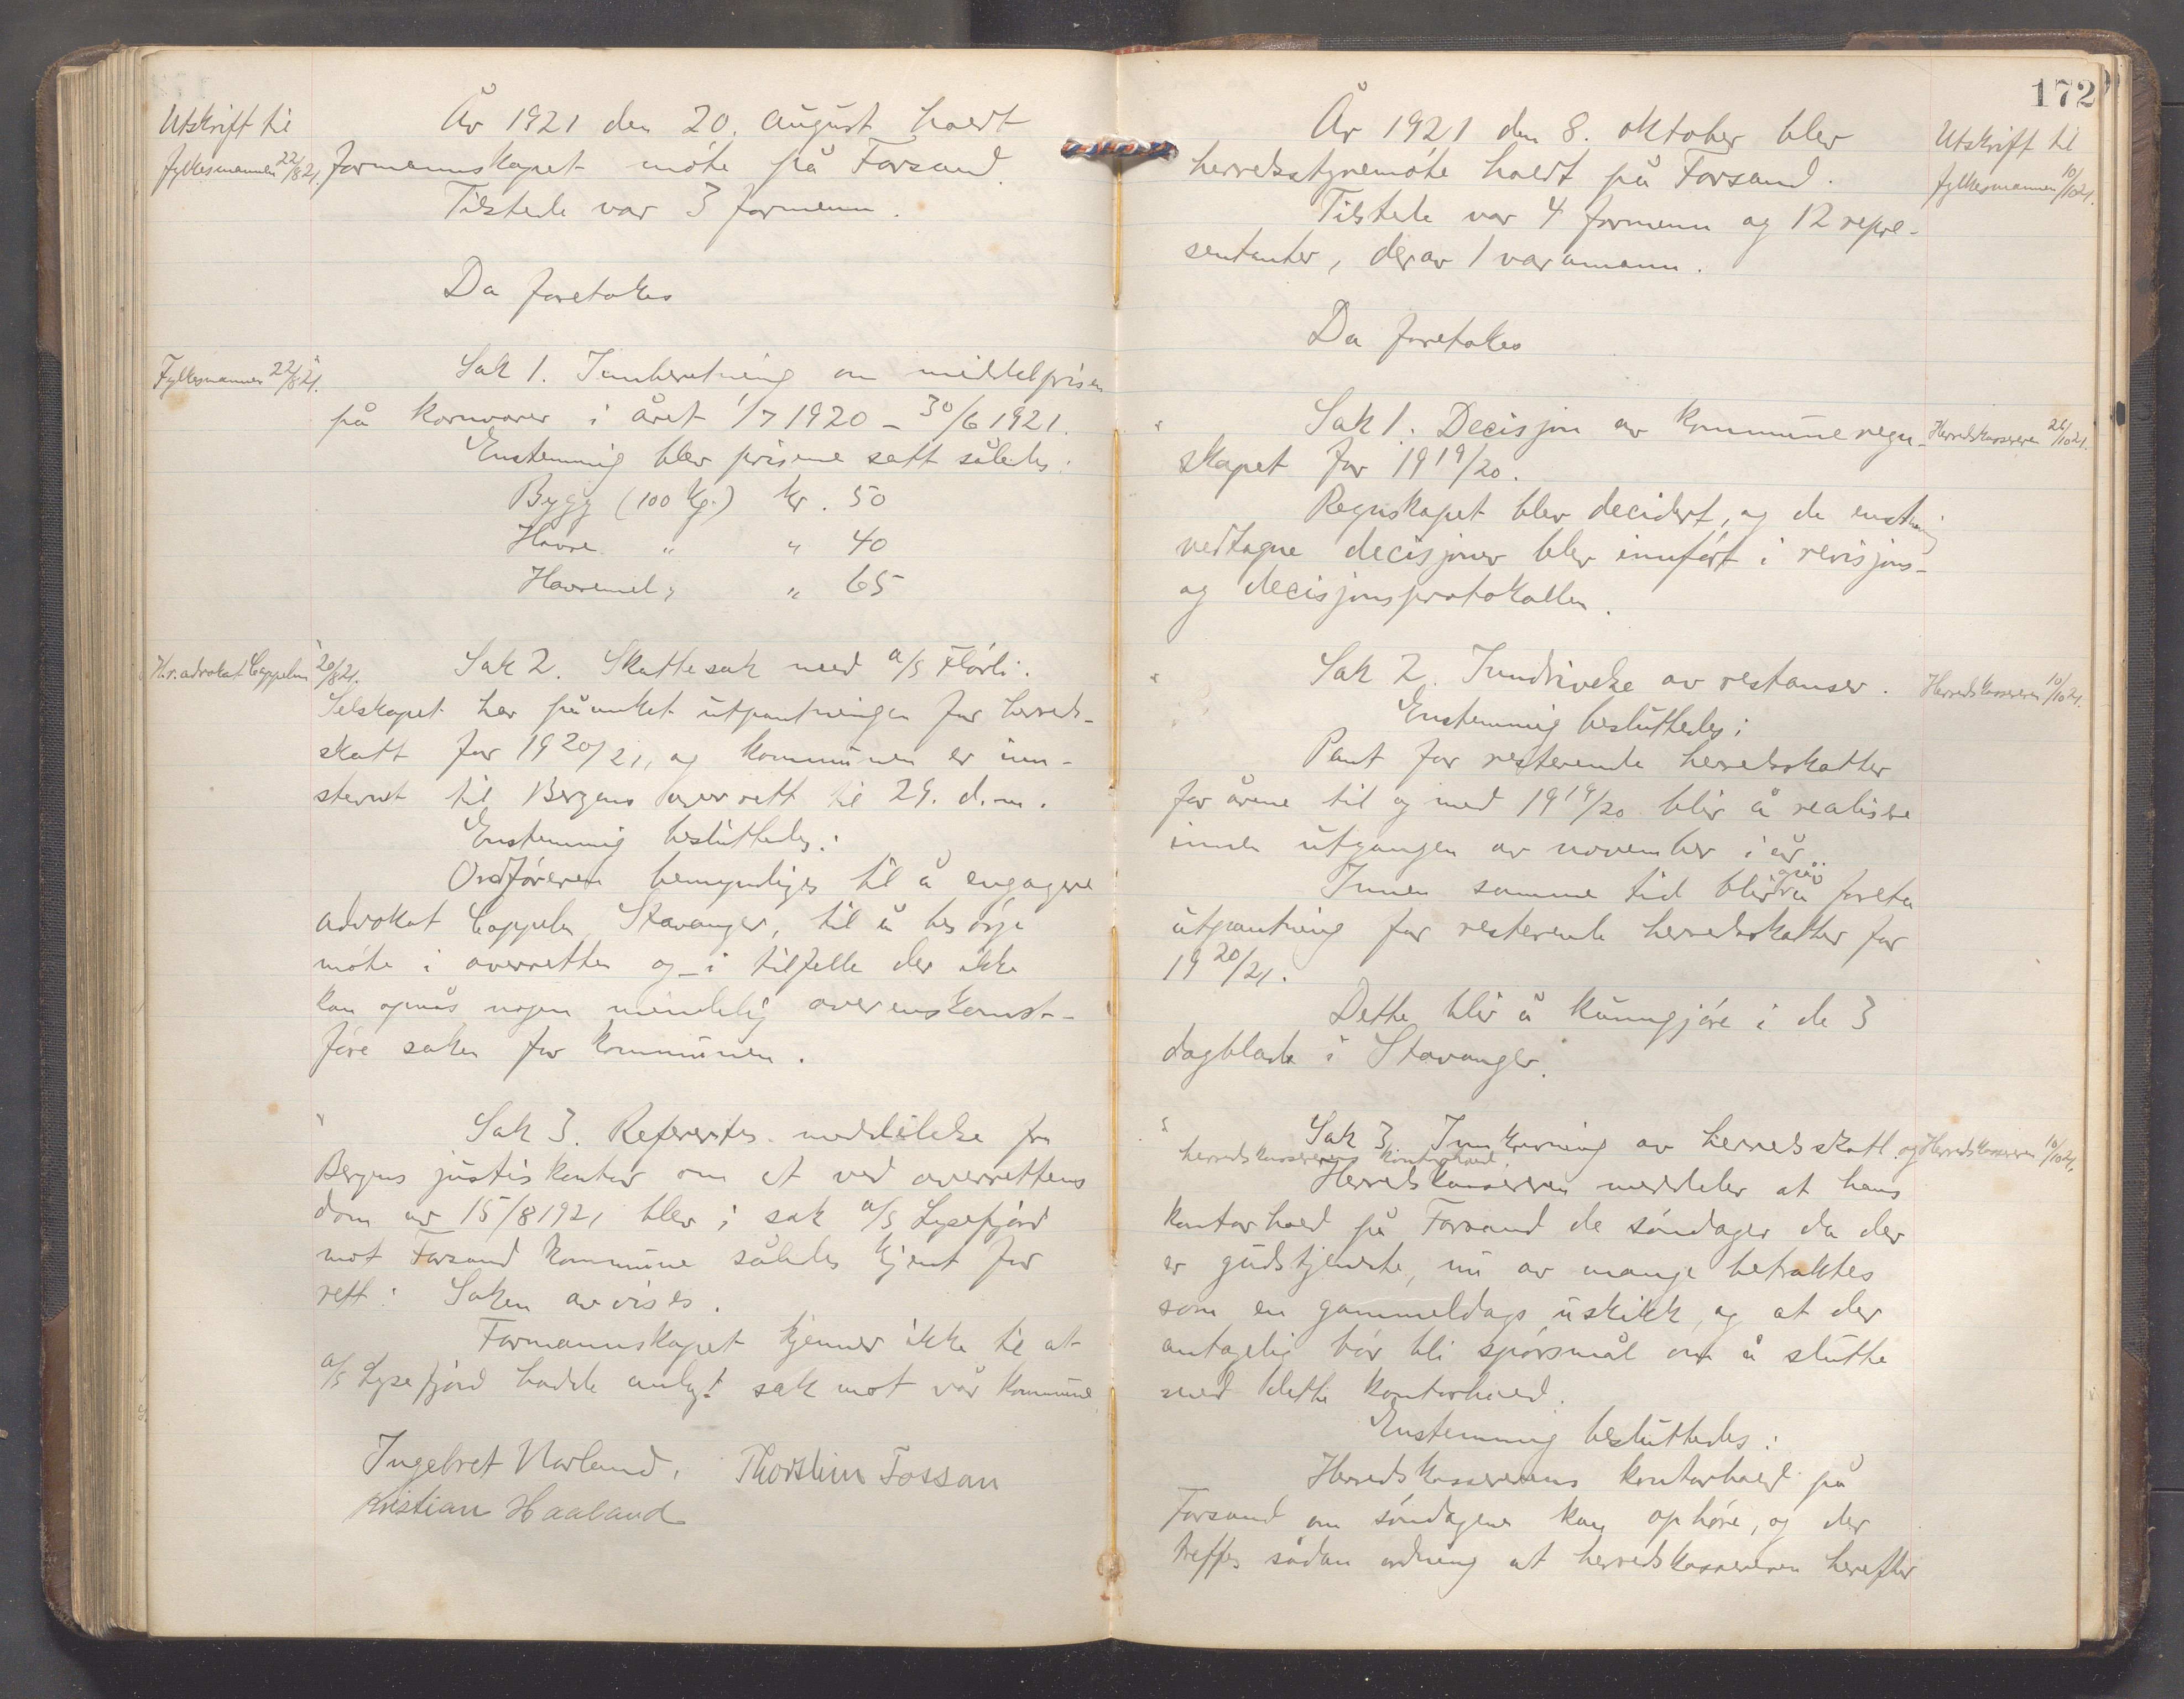 Utskrift til
fylkesmannen 22/8 21.
År 1921 den 20. august holdt
formennskapet møte på Forsand.
Tilstede var 3 formenn.
Da foretokes
Fylkesmannen 22/8 21.
Sak 1. Innberetning om middelprisen
på kornvarer i året 1/7 1920 - 30/6 1921.
Enstemmig blev prisene satt således:
Bygg (100 kg.) kr. 50
Havre " " 40
Havremel " " 65
H.r.advokat Cappelen 20/8 21.
Sak 2. Skattesak med a/s Flørli.
Selskapet har påanket utpantningen for herreds-
skatt for 1920/21, og kommunen er inn-
stevnt til Bergens overrett til 29. d.m.
Enstemmig besluttedes:
Ordføreren bemyndiges til å engagere
advokat Cappelen, Stavanger, til å besørge
møte i overretten og - i tilfelle der ikke
kan opnås nogen mindelig overenskomst -
føre saken for kommunen.
Sak 3. Refereertes meddelelse fra
Bergens justiskontor om at ved overrettens
dom av 15/8 1921 blev i sak a/s Lysefjord
mot Forsand kommune således kjent for
rett: Saken avvises.
Formannskapet kjenner ikke til at
a/s Lysefjord hadde anlagt sak mot vår kommune.
Ingebret Norland, Thorstein Fossan
Kristian Haaland
172
Utskrift til
fylkesmannen 10/10 21.
År 1921 den 8. oktober blev
herredsstyremøte holdt på Forsand.
Tilstede var 4 formenn og 12 repre-
sentanter, derav 1 varamann.
Da foretokes
Sak 1. Decisjon av kommuneregn-
Herredskassereren 26/10 21.
skapet for 1919/20.
Regnskapet blev decidert, og de enstemmig
vedtagne decisjoner blev innført i revisjons-
og decisjonsprotokollen.
Sak 2. Inndrivelse av restanser.
Herredskassereren 10/10 21.
Enstemmig besluttedes:
Pant for resterende herredsskatter
for årene til og med 1919/20 blir å realisere
innen utgangen av november i år.
Innen samme tid blir også å foreta
utpantning for resterende herredsskatter for
1920/21.
Dette blir å kunngjøre i de 3
dagblade i Stavanger.
Sak 3. Innkrevning av herredsskatt og
Herredskassereren 10/10 21.
herredskassererens kontorhold.
Herredskassereren meddeler at hans
kontorhold på Forsand de søndager da der
er gudstjeneste, nu av mange betraktes
som en gammeldags uskikk, og at der
antagelig bør bli spørsmål om å slutte
med dette kontorhold.
Enstemmig besluttedes:
Herredskassererens kontorhold på
Forsand om søndagene kan ophøre, og der
treffes sådan ordning at herredskassereren herefter